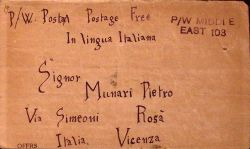 P/W. Postan Postage Free
P/W MIDDLE
EAST 103
In lingua Italiana
Signor
Munari Pietro
Via Simeoni Rosà
Italia, Vicenza
OFFRS